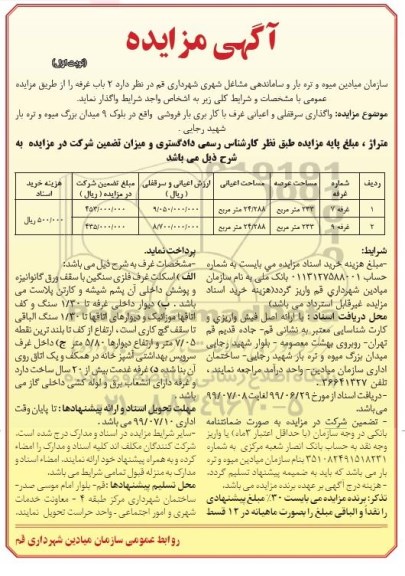 آگهی مزایده
(نوبت اول)
سازمان میادین میوه و تره بار و ساماندهی مشاغل شهری شهرداری قم در نظر دارد ۲ باب غرفه را از طریق مزایده
عمومی با مشخصات و شرایط کلی زیر به اشخاص واجد شرایط واگذار نماید.
موضوع مزایده: واگذاری سرقفلی و اعیانی غرف با کاربری بار فروشی واقع در بلوک ۹ میدان بزرگ میوه و تره بار
شهید رجایی.
متراژ ، مبلغ پایه مزایده طبق نظر کارشناس رسمی دادگستری و میزان تضمین شرکت در مزایده به
شرح ذیل می باشد
ردیف شماره غرفه مساحت عرصه مساحت اعیانی ارزش اعیانی و سرقفلی (ریال) مبلغ تضمین شرکت در مزایده (ریال) هزینه خرید اسناد
۱ غرفه ۷ ۲۳۳ متر مربع ۲۴/۲۸۸ متر مربع ۹/۰۵۰/۰۰۰/۰۰۰ ۴۵۳/۰۰۰/۰۰۰ ۵۰۰/۰۰۰ ریال
۲ غرفه ۹ ۲۳۳ متر مربع ۲۴/۲۸۸ متر مربع ۸/۷۰۰/۰۰۰/۰۰۰ ۴۳۵/۰۰۰/۰۰۰
شرایط:
-مبلغ هزینه خرید اسناد مزایده می بایست به شماره
حساب ۰۱۱۳۱۲۷۵۸۸۰۰۱ بانک ملی به نام سازمان
میادین شهرداری قم واریز گردد(هزینه خرید اسناد
مزایده غیرقابل استرداد می باشد)
محل دریافت اسناد : با ارائه اصل فیش واریزی و
کارت شناسایی معتبر به نشانی قم- جاده قدیم قم
تهران- روبروی بهشت معصومه - بلوار شهید رجایی
میدان بزرگ میوه و تره بار شهید رجایی- ساختمان
اداری سازمان میادین- واحد درآمد مراجعه نمایند.
تلفن ۳۶۶۴۱۳۲۷.
-دریافت اسناد از مورخ ۹۹/۰۶/۲۹ لغایت ۹۹/۰۷/۰۸
می باشد.
- تضمین شرکت در مزایده به صورت ضمانتنامه
بانکی در وجه سازمان (با حداقل اعتبار ۳ماه) یا واریز
وجه نقد به حساب بانک انصار شعبه مرکزی به شماره
بنام سازمان میادین میوه و تره
بار می باشد که باید به ضمیمه پیشنهاد تسلیم گردد.
- هزینه درج آگهی بر عهده برنده مزایده می باشد
تذکر: برنده مزایده می بایست ۳۰٪ مبلغ پیشنهادی
را نقداً و الباقی مبلغ را بصورت ماهیانه در ۱۲ قسط
پرداخت نماید.
-مشخصات غرف به شرح ذیل می باشد:
الف ) اسکلت غرف فلزی سنگین با سقف ورق گالوانیزه
و پوشش داخلی آن پشم شیشه و کارتن پلاست می
باشد . ب) دیوار داخلی غرفه تا ۱/۳۰ سنگ و کف
اتاقها موزائیک و دیوارهای اتاقها تا ۱/۳۰ سنگ الباقی
تا سقف گچ کاری است ، ارتفاع از کف تا بلندترین نقطه
۷/۰۵ متر و ارتفاع دیوارها ۵/۸۰ متر ج) داخل غرف
سرویس بهداشتی آشپز خانه در همکف و یک اتاق روی
آن بنا شده د) غرفه قدمت بیش از ۲۰ سال ساخت دارد
و غرفه دارای انشعاب برق و لوله کشی داخلی گاز می
باشد.
مهلت تحویل اسناد و ارائه پیشنهادها : تا پایان وقت
اداری ۹۹/۰۷/۱۰ می باشد.
-سایر شرایط مزایده در اسناد و مدارک درج شده است.
شرکت کنندگان مکلف اند کلیه اسناد و مدارک را امضاء
کرده و به همراه پیشنهاد خود ارائه نمایند. امضاء اسناد و
مدارک به منزله قبول تمامی شرایط می باشد.
محل تسلیم پیشنهادها :قم- بلوار امام موسی صدر-
ساختمان شهرداری مرکز طبقه ۴ - معاونت خدمات
شهری و امور اجتماعی - واحد حراست تحویل نمایند.
روابط عمومی سازمان میادین شهرداری قم